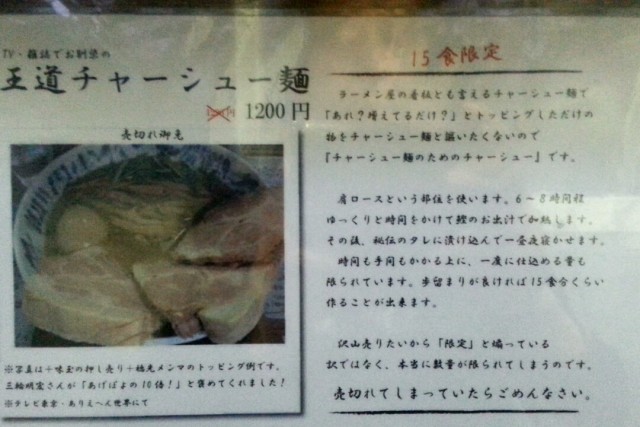 TV・雑誌でお馴染の
王道チャーシュー麺
1200円
売切れ御免
※写真は+味玉の押し売り+穂先メンマのトッピング例です。
三輪明宏さんが「あげぽよの10倍!」と褒めてくれました!
※テレビ東京・ありえへん世界にて
15食限定
ラーメン屋の看板とも言えるチャーシュー麺で
「あれ?増えてるだけ?」とトッピングしただけの
物をチャーシュー麺と謳いたくないので
『チャーシュー麺のためのチャーシュー』です。
肩ロースという部位を使います。6~8時間程
ゆっくりと時間をかけて鰹のお出汁で加熱します。
その後、秘伝のタレに漬け込んで一昼夜寝かせます。
時間も手間もかかる上に、一度に仕込める量も
限られています。歩留まりが良ければ15食分くらい
作ることが出来ます。
沢山売りたいから「限定」と煽っている
訳ではなく、本当に数量が限られてしまうのです。
売切れてしまっていたらごめんなさい。